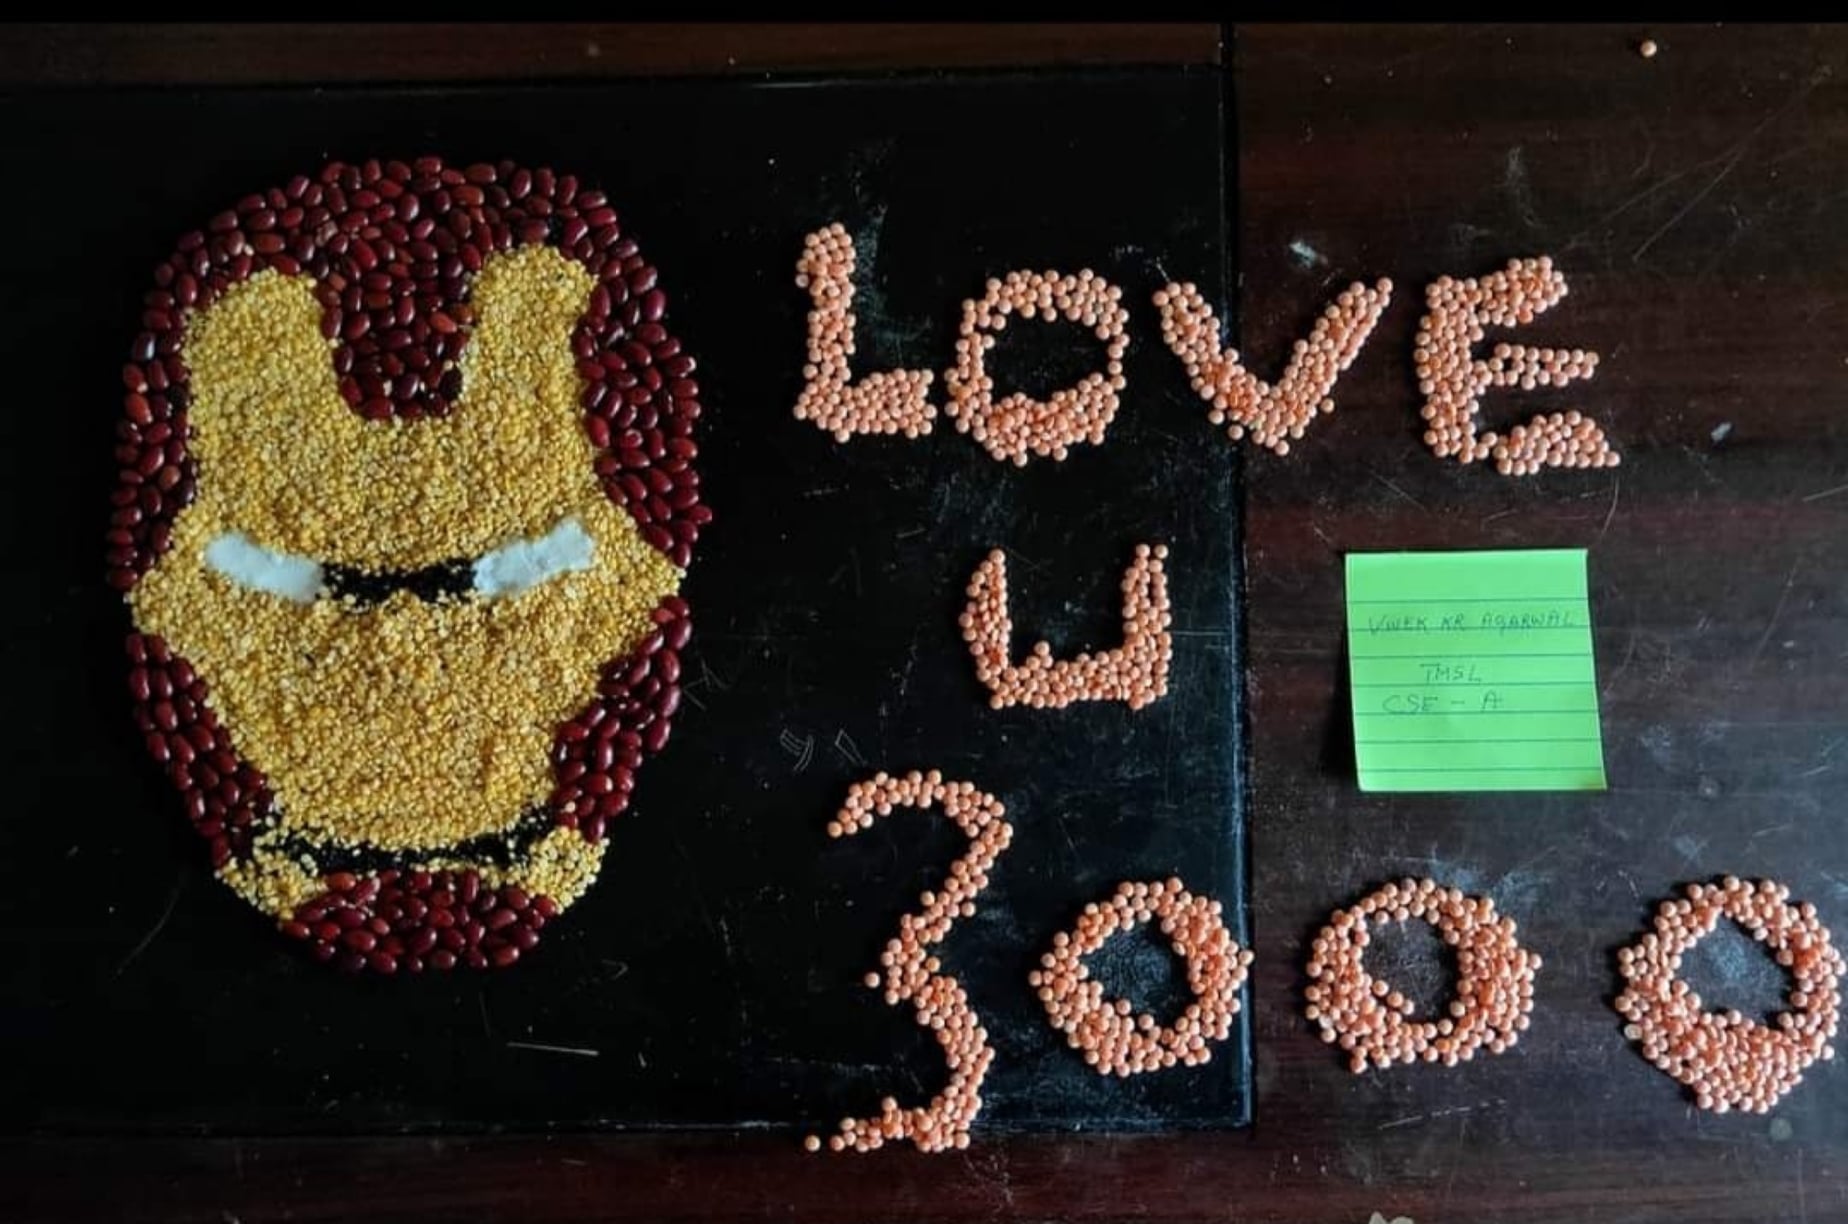 LOVE
U
3000
VIVEK KR AGARWAL
TMSL
CSE - A